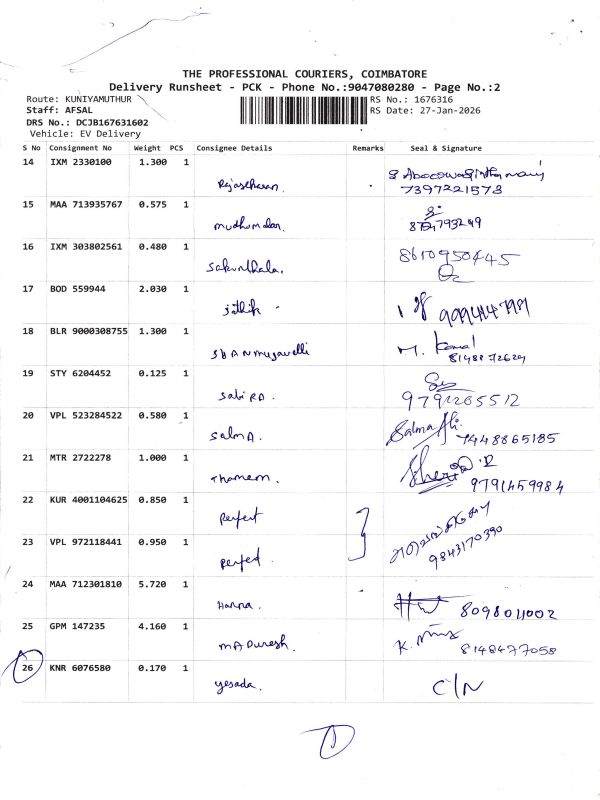 THE PROFESSIONAL COURIERS, COIMBATORE
Delivery Runsheet - PCK - Phone No.:9047080280 - Page No.:2
Route: KUNIYAMUTHUR
RS No.: 1676316
Staff: AFSAL
RS Date: 27-Jan-2026
DRS No.: DCJB167631602
Vehicle: EV Delivery
S No Consignment No Weight PCS Consignee Details Remarks Seal & Signature
14 IXM 2330100 1.300 1
Rajasekaran.
7397221573
15 MAA 713935767 0.575 1
16 IXM 303802561 0.480 1
8610950445
Sakunthala.
17 BOD 559944 2.030 1
18 BLR 9000308755 1.300 1
M. Kamal
8148872629
19 STY 6204452 0.125 1
Sabi RA.
20 VPL 523284522 0.580 1
Salma Ali
SalmA. 7448865185
21 MTR 2722278 1.000 1
Thameem. 9791459984
22 KUR 4001104625 0.850 1
Perfect
23 VPL 972118441 0.950 1
Perfect. 9843170390
24 MAA 712301810 5.720 1
Hanna. 8098011002
25 GPM 147235 4.160 1
8148477058
26 KNR 6076580 0.170 1
yesada. C/N
1